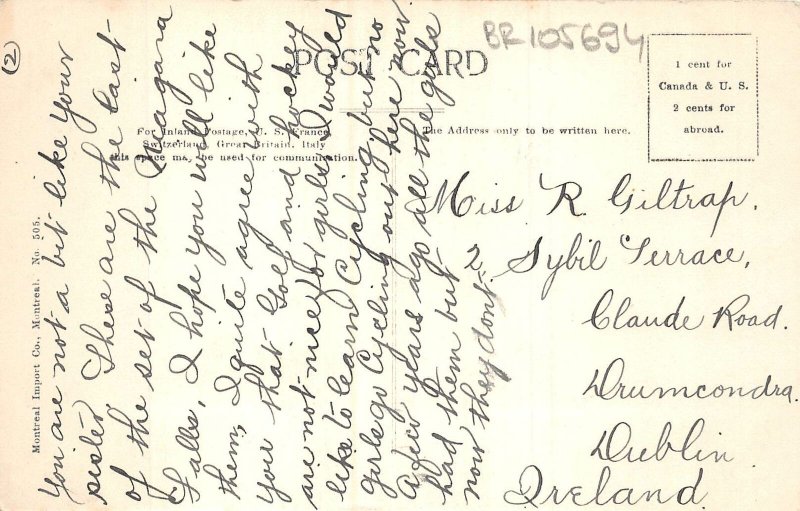 (2)
BR105694
POST CARD
1 cent for
Canada & U. S.
2 cents for
abroad.
For Inland Postage, U. S. France
Switzerland, Great Britain, Italy
this space may be used for communication.
The Address only to be written here.
Montreal Import Co., Montreal. No. 505.
You are not a bit like your
sister These are the last
of the set of the Niagara
Falls, I hope you will like
them, I quite agree with
you that Golf and hockey
are not nice for girls, I would
like to learn Cycling, but no
girls go Cycling out here now
A few years ago all the girls
had them but
now they dont.
Miss R. Giltrap.
2 Sybil Terrace,
Claude Road.
Drumcondra.
Dublin
Ireland.